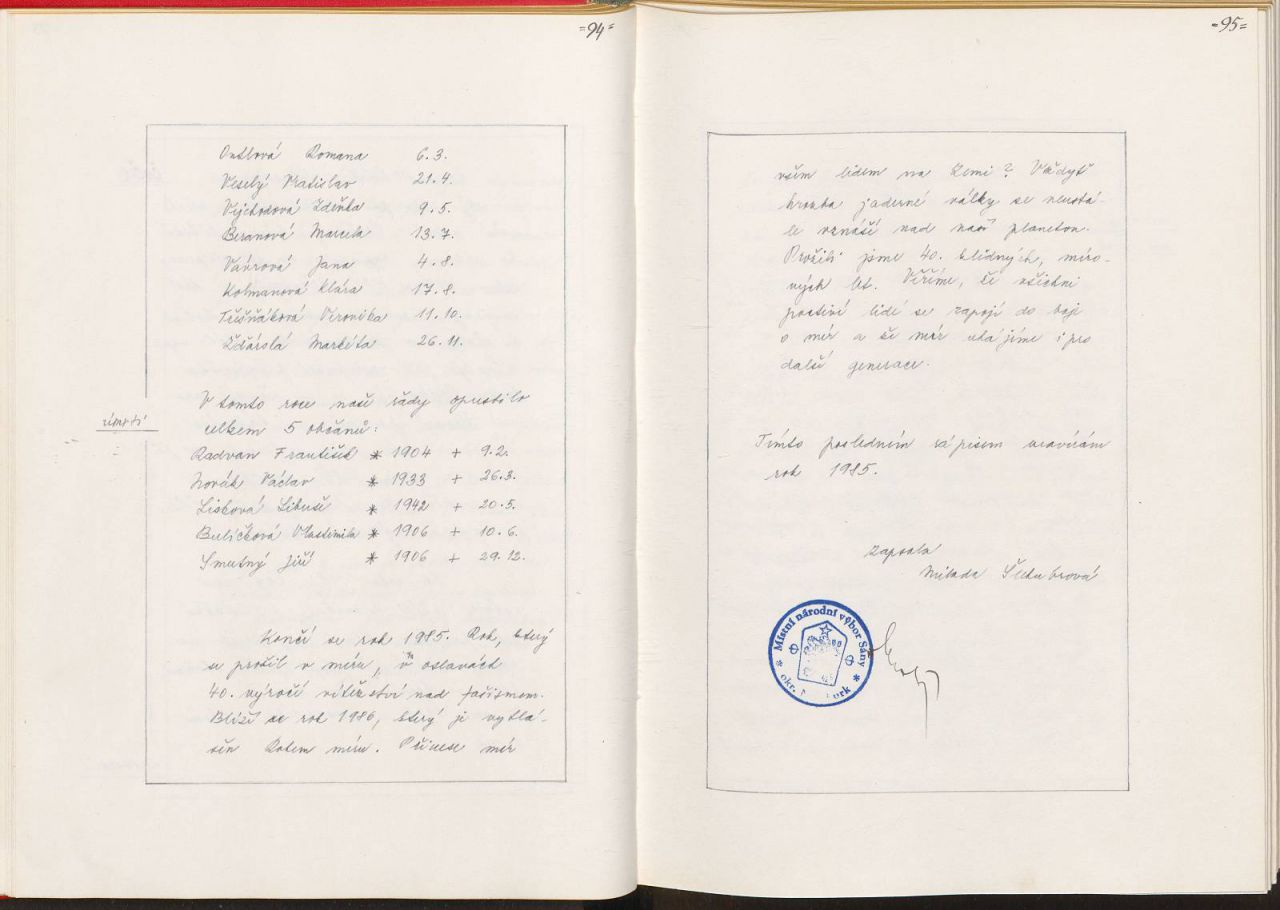 =94=
Romana 6.3.
Veselý Vratislav 21.4.
Východová Zdeňka 9.5.
Beranová Marcela 13.7.
Vávrová Jana 4.8.
Kolmanová Klára 17.8.
Třešňáková Veronika 11.10.
Žďárská Markéta 26.11.
úmrtí
V tomto roce naše řady opustilo
celkem 5 občanů:
Radvan František * 1904 + 9.2.
Novák Václav * 1933 + 26.3.
Lisková Libuše * 1942 + 20.5.
Bulíčková Vlastimila * 1906 + 10.6.
Smutný Jiří * 1906 + 29.12.
Končí se rok 1985. Rok, který
se prožil v míru, v oslavách
40. výročí vítězství nad fašismem.
Blíží se rok 1986, který je vyhlá-
šen Rokem míru. Přinese mír
=95=
všem lidem na Zemi? Vždyť
hrozba jaderné války se neustá-
le vznáší nad naší planetou.
Prožili jsme 40. klidných, míro-
vých let. Věříme, že všichni
poctiví lidé se zapojí do boje
o mír a že mír uhájíme i pro
další generace.
Tímto posledním zápisem uzavírám
rok 1985.
Zapsala
Milada
Místní národní výbor Sány
okr.